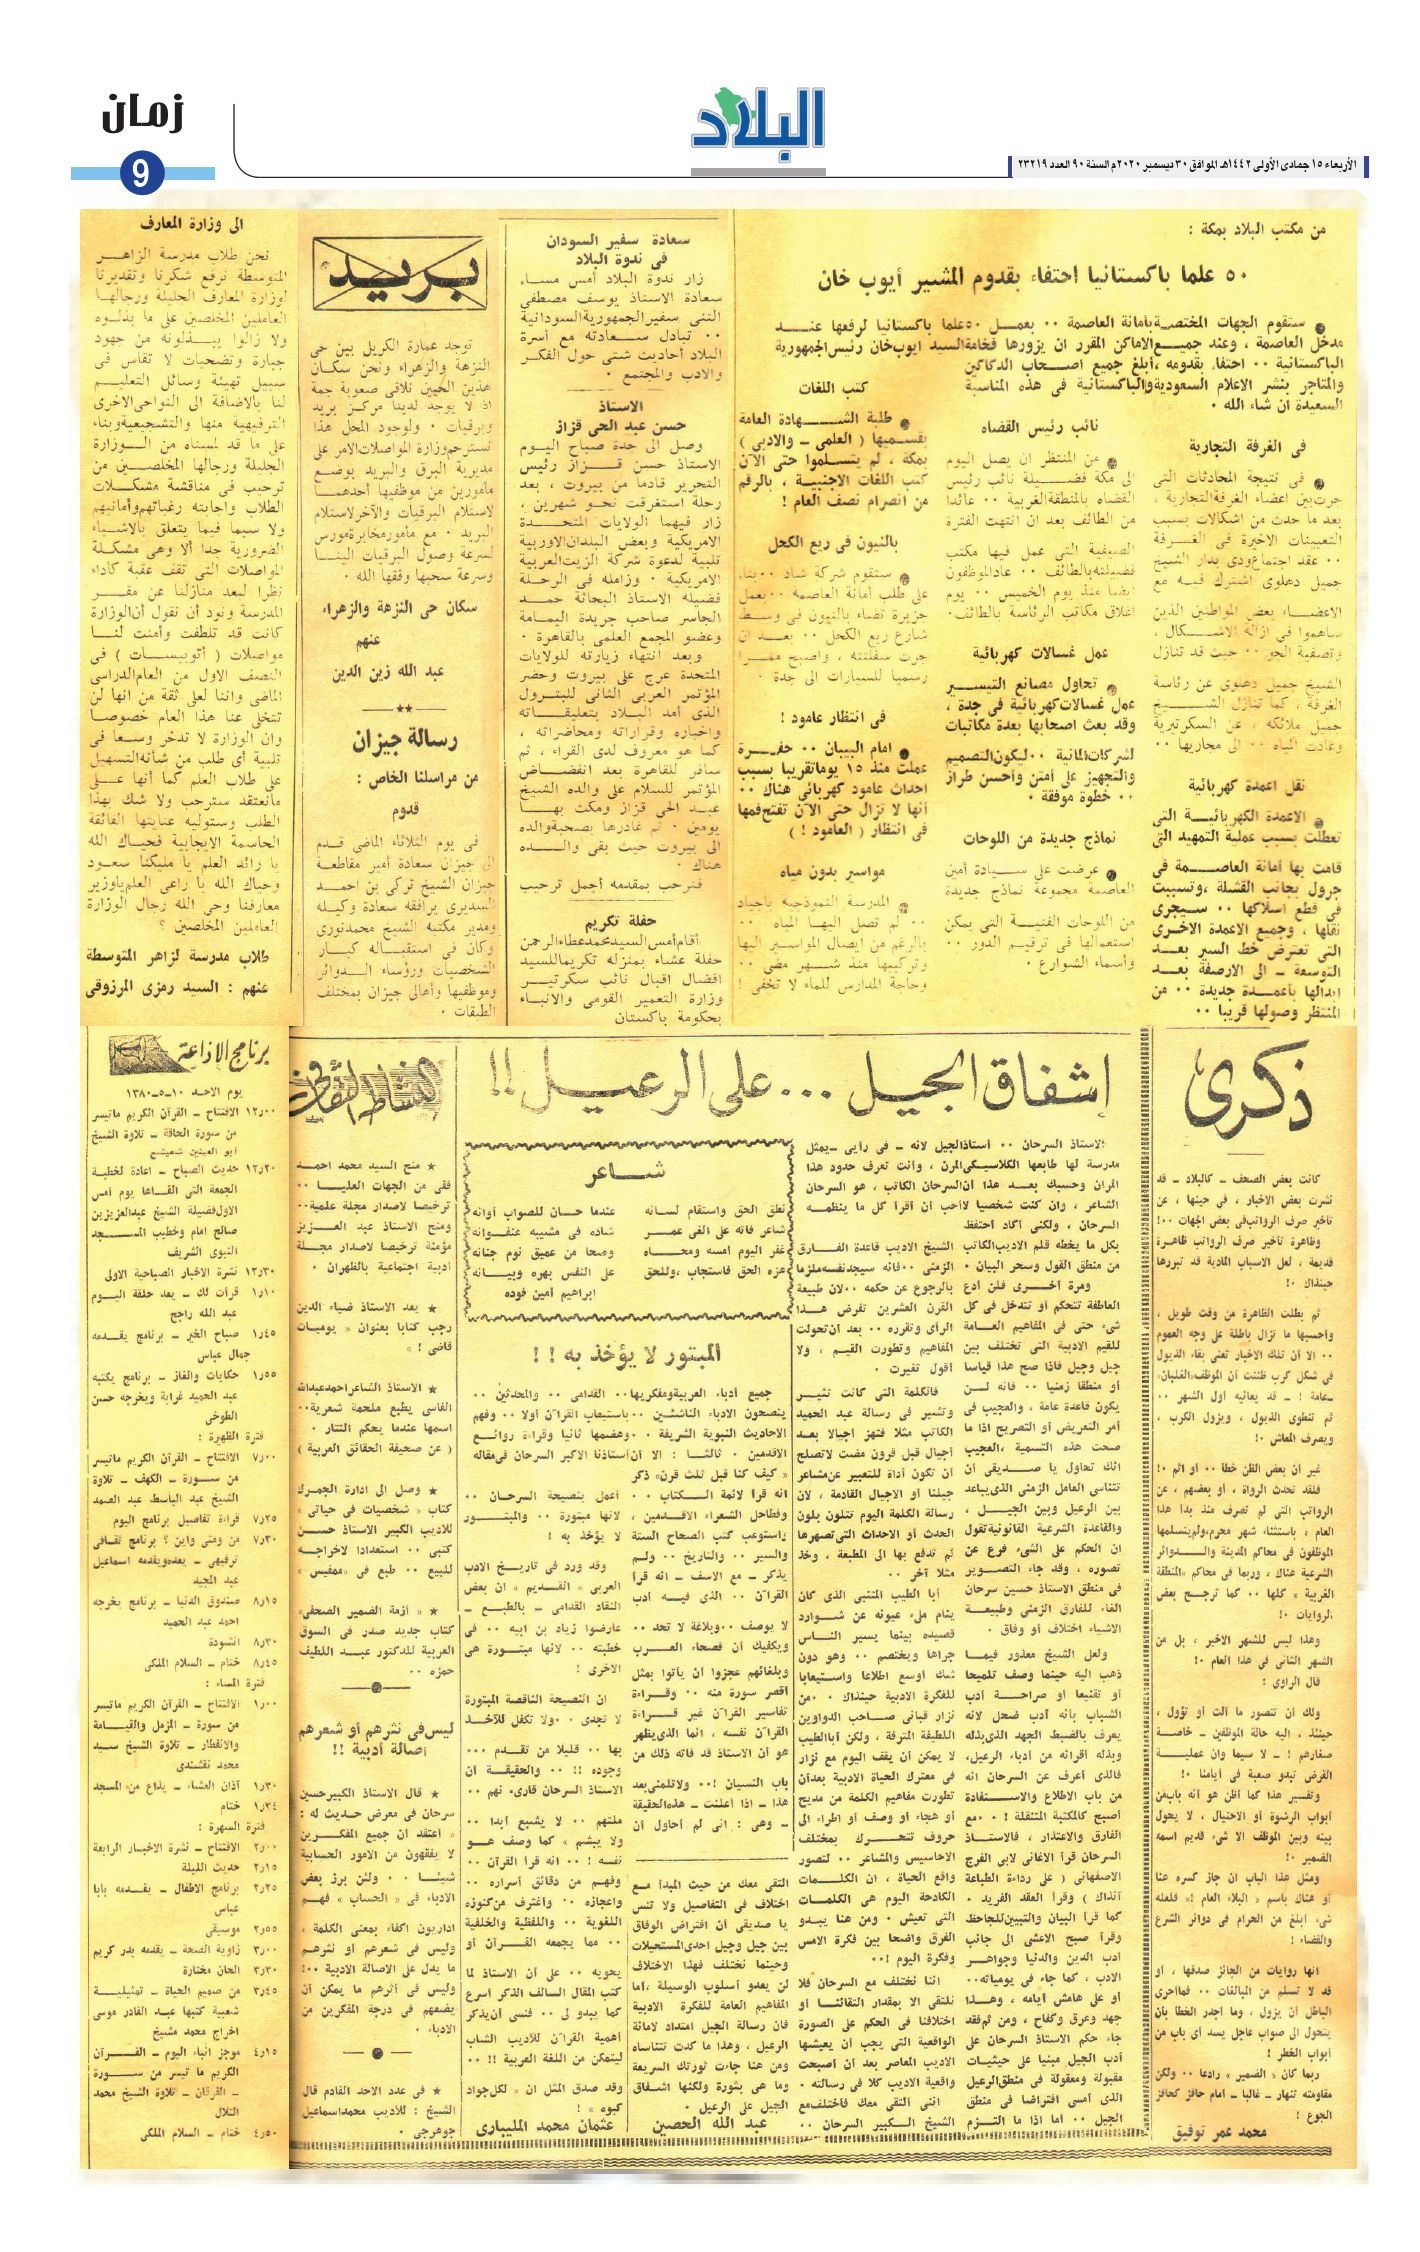 زمان
9
البلاد
الأربعاء ١٥ جمادى الأولى ١٤٤٢هـ الموافق ٣٠ ديسمبر ٢٠٢٠م السنة ٩٠ العدد ٢٣٢١٩
من مكتب البلاد بمكة :
٥٠ علما باكستانيا احتفاء بقدوم المشير أيوب خان
ستقوم الجهات المختصة بأمانة العاصمة ٠٠ بعمل ٥٠ علما باكستانيا لرفعها عند
مدخل العاصمة ، وعند جميع الاماكن المقرر ان يزورها فخامة السيد ايوب خان رئيس الجمهورية
الباكستانية ٠٠ احتفاء بقدومه ، أبلغ جميع أصحاب الدكاكين
والمتاجر بنشر الاعلام السعودية والباكستانية في هذه المناسبة
السعيدة ان شاء الله ٠
في الغرفة التجارية
في نتيجة المحادثات التى
جرت بين اعضاء الغرفة التجارية ،
بعد ما حدث من اشكالات بسبب
التعيينات الاخيرة في الغرفة
٠٠ عقد اجتماع ودى بدار الشيخ
جميل دهلوى اشترك فيه مع
الاعضاء بعض المواطنين الذين
ساهموا في ازالة الاشكال ،
وتصفية الجو ٠٠ حيث قد تنازل
الشيخ جميل دهلوى عن رئاسة
الغرفة ، كما تنازل الشيخ
جميل ملائكه ، عن السكرتيرية
وعادت المياه ٠٠ الى مجاريها ٠٠
نقل اعمدة كهربائية
الاعمدة الكهربائية التى
تعطلت بسبب عملية التمهيد التى
قامت بها أمانة العاصمة في
جرول بجانب القشلة ، وتسببت
في قطع أسلاكها ٠٠ سيجرى
نقلها ، وجميع الاعمدة الاخرى
التى تعترض خط السير بعد
التوسعة – الى الارصفة بعد
ابدالها بأعمدة جديدة ٠٠ من
المنتظر وصولها قريبا ٠٠
نائب رئيس القضاه
من المنتظر ان يصل اليوم
الى مكة فضيلة نائب رئيس
القضاه بالمنطقة الغربية ٠٠ عائدا
من الطائف بعد ان انتهت الفترة
الصيفية التى عمل فيها مكتب
فضيلته بالطائف ٠٠ عاد الموظفون
ايضا منذ يوم الخميس ٠٠ يوم
اغلاق مكاتب الرئاسة بالطائف ٠
عمل غسالات كهربائية
تحاول مصانع التيسير
عمل غسالات كهربائية في جدة ،
وقد بعث اصحابها بعدة مكاتبات
لشركات المانية ٠٠ ليكون التصميم
والتجهيز على أمتن وأحسن طراز
٠٠ خطوة موفقة ٠
نماذج جديدة من اللوحات
عرضت على سيادة أمين
العاصمة مجموعة نماذج جديدة
من اللوحات الفنية التى يمكن
استعمالها في ترقيم الدور ٠٠
وأسماء الشوارع ٠
كتب اللغات
طلبة الشهادة العامة
بقسميها ( العلمى – والادبى )
بمكة ، لم يتسلموا حتى الآن
كتب اللغات الاجنبية ، بالرغم
من انصرام نصف العام !
بالنيون في ريع الكحل
ستقوم شركة شاد ٠٠ بناء
على طلب أمانة العاصمة ٠٠ بعمل
جزيرة تضاء بالنيون في وسط
شارع ريع الكحل ٠٠ بعد ان
جرت سفلتته ، واصبح ممرا
رسميا للسيارات الى جدة ٠
في انتظار عامود !
امام البيبان ٠٠ حفرة
عملت منذ ١٥ يوما تقريبا بسبب
احداث عامود كهربائى هناك ٠٠
أنها لا تزال حتى الآن تفتح فمها
في انتظار ( العامود ! )
مواسير بدون مياه
المدرسة النموذجية باجياد
٠٠ لم تصل اليها المياه ٠٠
بالرغم من ايصال المواسير اليها
وتركيبها منذ شهر مضى ٠٠
وحاجة المدارس للماء لا تخفى !
سعادة سفير السودان
في ندوة البلاد
زار ندوة البلاد أمس مساء
سعادة الاستاذ يوسف مصطفى
التنى سفير الجمهورية السودانية
٠٠ تبادل سعادته مع أسرة
البلاد أحاديث شتى حول الفكر
والادب والمجتمع ٠
الاستاذ
حسن عبد الحى قزاز
وصل الى جدة صباح اليوم
الاستاذ حسن قزاز رئيس
التحرير قادما من بيروت ، بعد
رحلة استغرقت نحو شهرين ،
زار فيهما الولايات المتحدة
الامريكية وبعض البلدان الاوربية
تلبية لدعوة شركة الزيت العربية
الامريكية ٠ وزامله في الرحلة
فضيلة الاستاذ البحاثة حمد
الجاسر صاحب جريدة اليمامة
وعضو المجمع العلمى بالقاهرة ٠
وبعد انتهاء زيارته للولايات
المتحدة عرج على بيروت وحضر
المؤتمر العربى الثانى للبترول
الذى أمد البلاد بتعليقاته
واخباره وقراراته ومحاضراته ،
كما هو معروف لدى القراء ، ثم
سافر للقاهرة بعد انفضاض
المؤتمر للسلام على والده الشيخ
عبد الحى قزاز ومكث بها
يومين ٠ ثم غادرها بصحبة والده
الى بيروت حيث بقى والده
هناك ٠
فنرحب بمقدمه أجمل ترحيب
حفلة تكريم
أقام أمس السيد محمد عطاء الرحمن
حفلة عشاء بمنزله تكريما للسيد
افضال اقبال نائب سكرتير
وزارة التعمير القومى والانباء
بحكومة باكستان
بريد
توجد عمارة الكريل بين حى
النزهة والزهراء ونحن سكان
هذين الحيين نلاقى صعوبة جمة
اذ لا يوجد لدينا مركز بريد
وبرقيات ٠ ولوجود المحل هذا
نسترحم وزارة المواصلات الامر على
مديرية البرق والبريد بوضع
مأمورين من موظفيها أحدهما
لاستلام البرقيات والآخر لاستلام
البريد ٠ مع مأمور مخابرة مورس
لسرعة وصول البرقيات الينا
وسرعة سحبها وفقها الله ٠
سكان حى النزهة والزهراء
عنهم
عبد الله زين الدين
رسالة جيزان
من مراسلنا الخاص :
قدوم
في يوم الثلاثاء الماضى قدم
الى جيزان سعادة أمير مقاطعة
جيزان الشيخ تركى بن احمد
السديرى يرافقه سعادة وكيله
ومدير مكتبه الشيخ محمد نورى
وكان في استقباله كبار
الشخصيات ورؤساء الدوائر
وموظفيها وأهالى جيزان بمختلف
الطبقات ٠
الى وزارة المعارف
نحن طلاب مدرسة الزاهر
المتوسطة نرفع شكرنا وتقديرنا
لوزارة المعارف الجليلة ورجالها
العاملين المخلصين على ما بذلوه
ولا زالوا يبذلونه من جهود
جبارة وتضحيات لا تقاس في
سبيل تهيئة وسائل التعليم
لنا بالاضافة الى النواحى الاخرى
الترفيهية منها والتشجيعية وبناء
على ما قد لمسناه من الوزارة
الجليلة ورجالها المخلصين من
ترحيب في مناقشة مشكلات
الطلاب واجابته رغباتهم وأمانيهم
ولا سيما فيما يتعلق بالاشياء
الضرورية جدا ألا وهى مشكلة
المواصلات التى تقف عقبة كأداء
نظرا لبعد منازلنا عن مقر
المدرسة ونود أن نقول أن الوزارة
كانت قد تلطفت وأمنت لنا
مواصلات ( أتوبيسات ) في
النصف الاول من العام الدراسى
الماضى واننا لعلى ثقة من انها لن
تتخلى عنا هذا العام خصوصا
وان الوزارة لا تدخر وسعا في
تلبية أى طلب من شأنه التسهيل
على طلاب العلم كما أنها على
مانعتقد سترحب ولا شك بهذا
الطلب وستوليه عنايتها الفائقة
الحاسمة الايجابية فحياك الله
يا رائد العلم يا مليكنا سعود
وحياك الله يا راعى العلم ياوزير
معارفنا وحى الله رجال الوزارة
العاملين المخلصين ؟
طلاب مدرسة لزاهر المتوسطة
عنهم : السيد رمزى المرزوقى
ذكرى
كانت بعض الصحف – كالبلاد – قد
نشرت بعض الاخبار ، في حينها ، عن
تأخير صرف الرواتب في بعض الجهات ٠٠!
وظاهرة تأخير صرف الرواتب ظاهرة
قديمة ، لعل الاسباب المادية قد تبررها
حينذاك !٠
ثم بطلت الظاهرة من وقت طويل ،
وأحسبها ما تزال باطلة على وجه العموم
٠٠ الا أن تلك الاخبار تعنى بقاء الذيول
ثم تنطوى الذيول ، ويزول الكرب ،
ويصرف المعاش !٠
غير ان بعض الظن خطأ ٠٠ او اثم !٠
فلقد تحدث الرواة ، او بعضهم ، عن
الرواتب التى لم تصرف منذ بدأ هذا
العام ، باستثناء شهر محرم، ولم يتسلمها
الموظفون في محاكم المدينة والدوائر
الشرعية هناك ، وربما في محاكم «المنطقة
الغربية» كلها ٠٠ كما ترجح بعض
الروايات !٠
وهذا ليس للشهر الاخير ، بل من
الشهر الثانى في هذا العام !٠
قال الراوى :
ولك ان تتصور ما آلت او تؤول ،
حينئذ ، اليه حالة الموظفين – خاصة
صغارهم ! – لا سيما وان عملية
القرض تبدو صعبة في أيامنا !٠
وتفسير هذا كما أظن هو أنه باب من
ابواب الرشوة أو الاحتيال ، لا يحول
بينه وبين الموظف الا شىء قديم اسمه
الضمير !٠
ومثل هذا الباب ان جاز كسره هنا
أو هناك باسم « البلاء العام !» فلعله
شىء ابلغ من الحرام في دوائر الشرع
والقضاء !
انها روايات من الجائز صدقها ، او
قد لا تسلم من المبالغات ٠٠ فماأحرى
الباطل أن يزول ، وما أجدر الخطأ بأن
يتحول الى صواب عاجل يسد أى باب من
أبواب الخطر !
ربما كان « الضمير » رادعا ٠٠ ولكن
مقاومته تنهار – غالبا – أمام حافز كحافز
الجوع !
محمد عمر توفيق
إشفاق الجيل ... على الرعيل !!
الاستاذ السرحان ٠٠ أستاذ الجيل لانه – في رأيى – يمثل
مدرسة لها طابعها الكلاسيكى المرن ، وأنت تعرف حدود هذا
المران وحسبك بعد هذا أن السرحان الكاتب ، هو السرحان
الشاعر ، وان كنت شخصيا لا أحب أن أقرأ كل ما ينظمه
السرحان ، ولكنى أكاد أحتفظ
بكل ما يخطه قلم الاديب الكاتب
من منطق القول وسحر البيان ٠
ومرة أخرى فلن أدع
العاطفة تتحكم أو تتدخل في كل
شىء حتى في المفاهيم العامة
للقيم الادبية التى تختلف بين
جيل وجيل فاذا صح هذا قياسا
أو منطقا زمنيا ٠٠ فانه لن
يكون قاعدة عامة ، والعجيب في
أمر التعريض أو التصريح اذا ما
صحت هذه التسمية ، العجيب
انك تحاول يا صديقى أن
تتناسى العامل الزمنى الذى يباعد
بين الرعيل وبين الجيل ،
والقاعدة الشرعية القانونية تقول
ان الحكم على الشىء فرع عن
تصوره ، وقد جاء التصوير
في منطق الاستاذ حسين سرحان
الغاء للفارق الزمنى وطبيعة
الاشياء اختلاف أو وفاق ٠
ولعل الشيخ معذور فيما
ذهب اليه حينما وصف تلميحا
أو تقنيعا أو صراحة أدب
الشباب بأنه أدب ضحل لانه
يعرف بالضبط الجهد الذى بذله
وبذله أقرانه من أدباء الرعيل،
فالذى أعرف عن السرحان انه
من باب الاطلاع والاستفادة
أصبح كالمكتبة المتنقلة ! ٠٠ مع
الفارق والاعتذار ، فالاستاذ
السرحان قرأ الاغانى لابى الفرج
الاصفهانى ( على رداءة الطباعة
آنذاك ) وقرأ العقد الفريد ٠
كما قرأ البيان والتبيين للجاحظ
وقرأ صبح الاعشى الى جانب
أدب الدين والدنيا وجواهر
الادب ، كما جاء في يومياته ٠٠
أو على هامش أيامه ، وهذا
جهد وعرق وكفاح ، ومن ثم فقد
جاء حكم الاستاذ السرحان على
أدب الجيل مبنيا على حيثيات
مقبولة ومعقولة في منطق الرعيل
الذى أمسى افتراضا في منطق
الجيل ٠٠ أما اذا ما التزم
الشيخ الاديب قاعدة الفارق
الزمنى ٠٠ فانه سيجد نفسه ملزما
بالرجوع عن حكمه ٠٠ لان طبيعة
القرن العشرين تفرض هذا
الرأى وتقرره ٠٠ بعد أن تحولت
المفاهيم وتطورت القيم ، ولا
أقول تغيرت ٠
فالكلمة التى كانت تثير
وتشير في رسالة عبد الحميد
الكاتب مثلا فتهز أجيالا بعد
أجيال قبل قرون مضت لا تصلح
ان تكون أداة للتعبير عن مشاعر
جيلنا أو الاجيال القادمة ، لان
رسالة الكلمة اليوم تتلون بلون
الحدث أو الاحداث التى تصهرها
ثم تدفع بها الى المطبعة ، وخذ
مثلا آخر ٠٠
أبا الطيب المتنبى الذى كان
ينام ملء عيونه عن شوارد
قصيده بينما يسير الناس
جراها ويختصم ٠٠ وهو دون
شك أوسع اطلاعا واستيعابا
للفكرة الادبية حينذاك ٠٠ من
نزار قبانى صاحب الدواوين
اللطيفة المترفة ، ولكن أباالطيب
لا يمكن ان يقف اليوم مع نزار
في معترك الحياة الادبية بعد أن
تطورت مفاهيم الكلمة من مديح
أو هجاء أو وصف أو اطراء الى
حروف تتحرك بمختلف
الاحاسيس والمشاعر ٠٠ لتصور
واقع الحياة ، ان الكلمات
الكادحة اليوم هى الكلمات
التى تعيش ٠ ومن هنا يبدو
الفرق واضحا بين فكرة الامس
وفكرة اليوم !٠٠
اننا نختلف مع السرحان فلا
نلتقى الا بمقدار التقائنا أو
اختلافنا في الحكم على الصورة
الواقعية التى يجب أن يعيشها
الاديب المعاصر بعد أن أصبحت
واقعية الاديب كلا في رسالته ٠
اننى التقى معك فاختلف مع
الشيخ الكبير السرحان ٠٠
التقى معك من حيث المبدأ مع
اختلاف في التفاصيل ولا تنس
يا صديقى أن افتراض الوفاق
بين جيل وجيل احدى المستحيلات
وحينما نختلف فهذا الاختلاف
لن يعدو أسلوب الوسيلة ، أما
المفاهيم العامة للفكرة الادبية
فان رسالة الجيل امتداد لامانة
الرعيل ، وهذا ما كدت تتناساه
ومن هنا جاءت ثورتك السريعة
وما هى بثورة ولكنها اشفاق
الجيل على الرعيل ٠
عبد الله الحصين
شاعر
نطق الحق واستقام لسانه
عندما حان للصواب أوانه
شاعر فاته على الغى عمر
شاده في مشيبه عنفوانه
غفر اليوم أمسه ومحاه
وصحا من عميق نوم جنانه
هزه الحق فاستجاب ، وللحق
على النفس بهره وبيانه
ابراهيم أمين فوده
المبتور لا يؤخذ به !!
جميع أدباء العربية ومفكريها ٠٠ القدامى ٠٠ والمحدثين ٠٠
ينصحون الادباء الناشئين ٠٠ باستيعاب القرآن أولا ٠٠ وفهم
الاحاديث النبوية الشريفة ٠٠ وهضمها ثانيا وقراءة روائع
الاقدمين ٠ ثالثا : الا أن أستاذنا الاكبر السرحان في مقاله
« كيف كنا قبل ثلث قرن» ذكر
انه قرأ لائمة الكتاب ٠٠
وفطاحل الشعراء الاقدمين ،
واستوعب كتب الصحاح الستة
والسير ٠٠ والتاريخ ٠٠ ولم
يذكر – مع الاسف – انه قرأ
القرآن ٠٠ الذى فيه أدب
لا يوصف ٠٠ وبلاغة لا تحد ٠٠
ويكفيك أن فصحاء العرب
وبلغائهم عجزوا ان يأتوا بمثل
أقصر سورة منه ٠٠ وقراءة
تفاسير القرآن غير قراءة
القرآن نفسه ، انما الذى يظهر
هو أن الاستاذ قد فاته ذلك من
باب النسيان !٠٠ ولا تلمنى بعد
هذا – اذا أعلنت – هذه الحقيقة
– وهى : انى لم أحاول أن
أعمل بنصيحة السرحان ٠٠
لانها مبتورة ٠٠ والمبتور
لا يؤخذ به !
وقد ورد في تاريخ الادب
العربى « القديم » ان بعض
النقاد القدامى – بالطبع –
عارضوا زياد بن ابيه ٠٠ في
خطبته ٠٠ لانها مبتورة هى
الاخرى !
ان النصيحة الناقصة المبتورة
لا تجدى ٠٠ ولا تكفل للآخذ
بها ٠٠ قليلا من تقدم ٠٠٠
وجوده !! ٠٠ والحقيقة ان
الاستاذ السرحان قارىء نهم ٠٠
ملتهم ٠٠ لا يشبع أبدا ٠٠
ولا يبشم » كما وصف هو
نفسه ! ٠٠ انه قرأ القرآن ٠٠
وفهم من دقائق أسراره ٠٠
واعجازه ٠٠ وأغترف من كنوزه
اللغوية ٠٠ واللفظية والخلقية
٠٠ مما يجمعه القرآن أو
يحويه ٠٠ على أن الاستاذ لما
كتب المقال السالف الذكر أسرع
كما يبدو لى ٠٠ فنسى أن يذكر
أهمية القرآن للأديب الشاب
ليتمكن من اللغة العربية !! ٠٠
وقد صدق المثل ان « لكل جواد
كبوه » !
عثمان محمد المليبارى
النشاط الثقافي
منح السيد محمد احمد
فقى من الجهات العليا ٠٠
ترخيصا لاصدار مجلة علمية ٠٠
ومنح الاستاذ عبد العزيز
مؤمنة ترخيصا لاصدار مجلة
أدبية اجتماعية بالظهران ٠
يعد الاستاذ ضياء الدين
رجب كتابا بعنوان « يوميات
قاضى ! »
الاستاذ الشاعر احمد عبدالله
الفاسى يطبع ملحمة شعرية ٠٠
اسمها عندما يحكم التتار ٠
( عن صحيفة الحقائق العربية )
وصل الى ادارة الجمرك
كتاب « شخصيات في حياتى »
للأديب الكبير الاستاذ حسن
كتبى ٠٠ استعدادا لاخراجه
للبيع ٠٠ طبع في «ممفيس »
« أزمة الضمير الصحفى»
كتاب جديد صدر في السوق
العربية للدكتور عبد اللطيف
حمزه ٠٠
ليس في نثرهم أو شعرهم
أصالة أدبية !!
قال الاستاذ الكبير حسين
سرحان في معرض حديث له :
« أعتقد ان جميع المفكرين
لا يفقهون من الامور الحسابية
شيئا ٠٠ ولئن برز بعض
الادباء في « الحساب » فهم
اداريون اكفاء بمعنى الكلمة ،
وليس في شعرهم أو نثرهم
ما يدل على الاصالة الادبية !٠٠
وليس في أثرهم ما يمكن أن
يضعهم في درجة المفكرين من
الادباء ٠
في عدد الاحد القادم قال
الشيخ : للأديب محمد اسماعيل
جوهرجى ٠
برنامج الاذاعة
يوم الاحد ١٠–٥–١٣٨٠
١٢٫٠٠ الافتتاح – القرآن الكريم ماتيسر
من سورة الحاقة – تلاوة الشيخ
أبو العينين شعيشع
١٢٫٢٠ حديث الصباح – اعادة لخطبة
الجمعة التى القاها يوم أمس
الاول فضيلة الشيخ عبدالعزيز بن
صالح امام وخطيب المسجد
النبوى الشريف
١٢٫٣٠ نشرة الاخبار الصباحية الاولى
١٫١٠ قرأت لك – بعد حلقة اليوم
عبد الله راجح
١٫٤٥ صباح الخير – برنامج يقدمه
جمال عباس
١٫٥٥ حكايات والغاز – برنامج يكتبه
عبد الحميد غرابة ويخرجه حسن
الطوخى
فترة الظهيرة :
٧٫٠٠ الافتتاح – القرآن الكريم ماتيسر
من سورة – الكهف – تلاوة
الشيخ عبد الباسط عبد الصمد
٧٫٢٥ قراءة تفاصيل برنامج اليوم
٧٫٣٠ من ومتى واين ؟ برنامج ثقافى
ترفيهى – يعده ويقدمه اسماعيل
عبد المجيد
٨٫١٥ صندوق الدنيا – برنامج يخرجه
احمد عبد الحميد
٨٫٣٠ انشودة
٨٫٤٥ ختام – السلام الملكى
فترة المساء :
١٫٠٠ الافتتاح – القرآن الكريم ماتيسر
من سورة – المزمل والقيامة
والانفطار – تلاوة الشيخ سيد
محمد نقشبندى
١٫٣٠ آذان العشاء – يذاع من المسجد
١٫٣٤ ختام
فترة السهرة :
٢٫٠٠ الافتتاح – نشرة الاخبار الرابعة
٢٫١٥ حديث الليلة
٢٫٢٥ برنامج الاطفال – يقدمه بابا
عباس
٢٫٥٥ موسيقى
٣٫٠٠ زاوية الصحة – يقدمه بدر كريم
٣٫٣٠ الحان مختارة
٣٫٤٥ من صميم الحياة – تمثيلية
شعبية كتبها عبد القادر موسى
اخراج محمد مشيخ
٤٫١٥ موجز أنباء اليوم – القرآن
الكريم ما تيسر من سورة
– الفرقان – تلاوة الشيخ محمد
التلال
٤٫٥٠ ختام – السلام الملكى